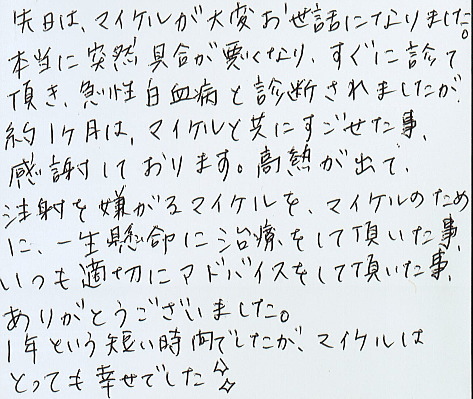 先日は、マイケルが大変お世話になりました。
本当に突然具合が悪くなり、すぐに診て
頂き、急性白血病と診断されましたが
約1ヶ月は、マイケルと共にすごせた事、
感謝しております。高熱が出て、
注射を嫌がるマイケルを、マイケルのため
に、一生懸命に治療をして頂いた事、
いつも適切にアドバイスをして頂いた事、
ありがとうございました。
1年という短い時間でしたが、マイケルは
とっても幸せでした✧✧